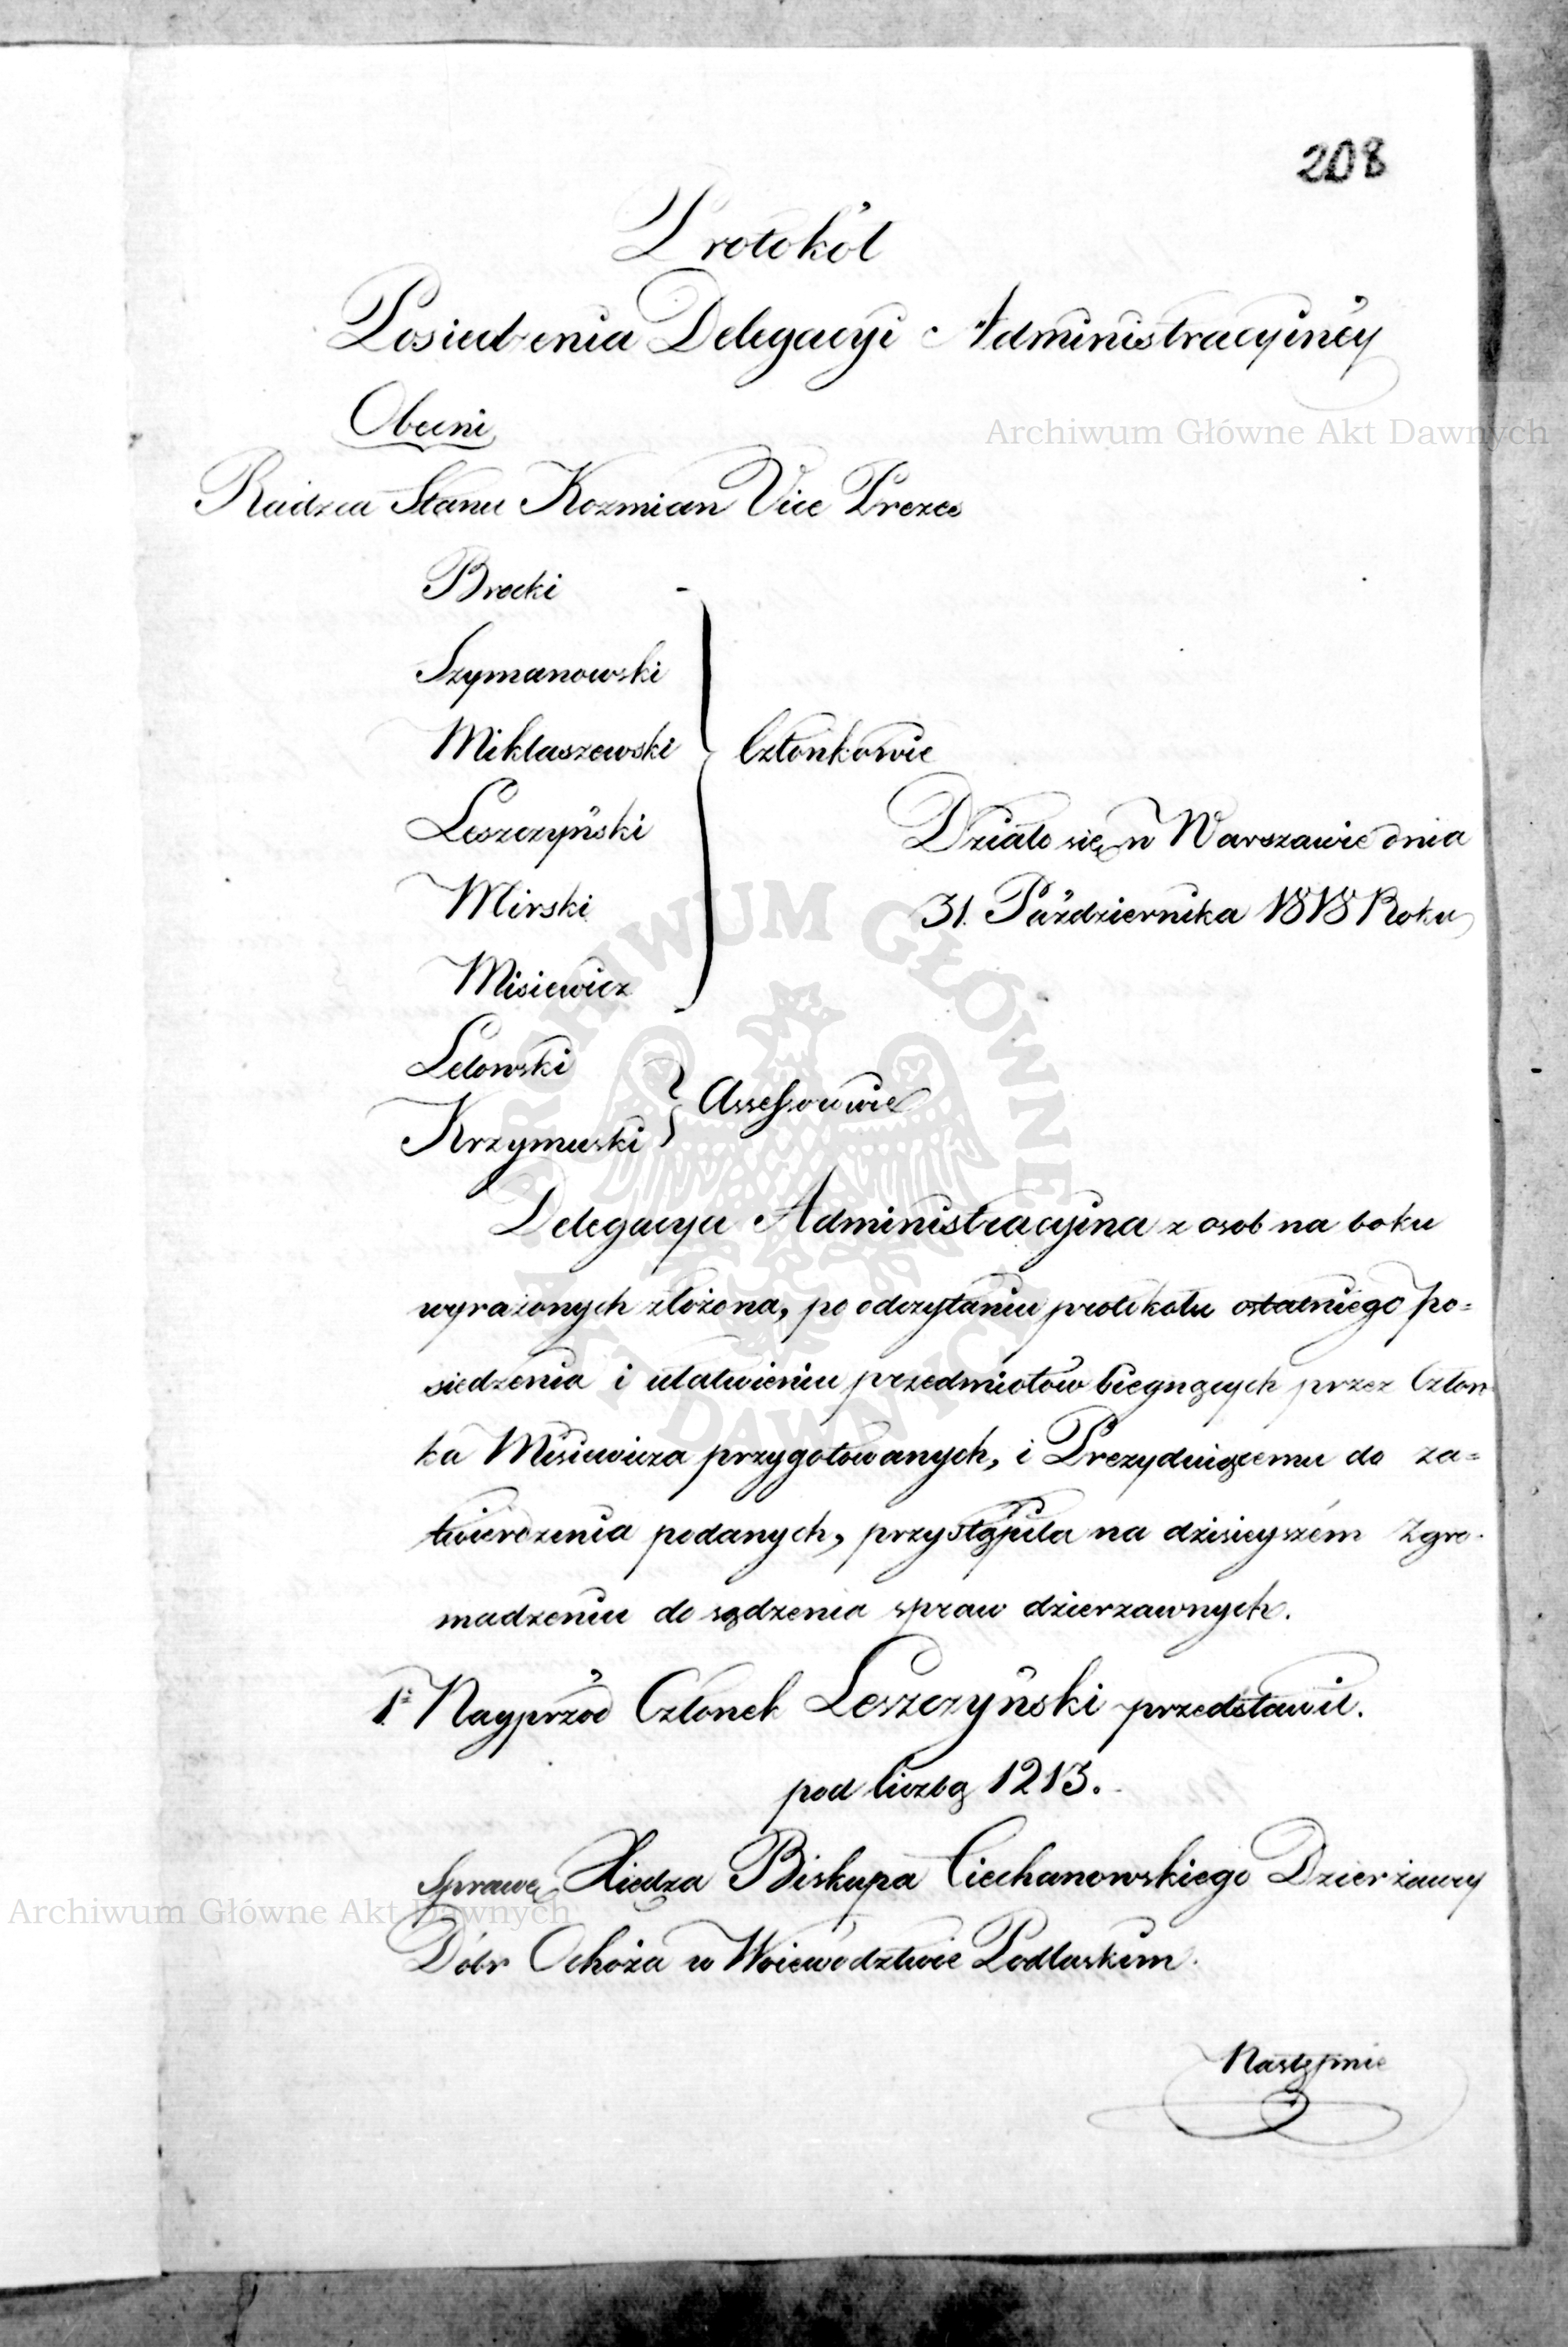 208
Protokół
Posiedzenia Delegacyi Administracyinéy
Obecni
Radzca Stanu Kozmian Vice Prezes
Brocki
Szymanowski
Miklaszewski
Członkowie
Leszczyński
Działo się w Warszawie dnia
Mirski
31. Października 1818 Roku
Misiewicz
Lelowski
Assessorowie
Krzymuski
Delegacya Administracyina z osob na boku
wyrażonych złożona, po odczytaniu protokołu ostatniego po=
siedzenia i ułatwieniu przedmiotów biegnących przez Człon
ka Misiewicza przygotowanych, i Prezyduiącemu do za=
twierdzenia podanych, przystąpiła na dzisieyszém Zgro-
madzeniu do sądzenia spraw dzierzawnych.
1. Nayprzód Członek Leszczyński przedstawił.
pod liczbą 1213.
Sprawę Xiedza Biskupa Ciechanowskiego Dzierżawcy
Dóbr Ochoża w Woiewództwie Podlaskim.
Następnie
Archiwum Główne Akt Dawnych
ARCHIWUM GŁÓWNE AKT DAWNYCH
Archiwum Główne Akt Dawnych